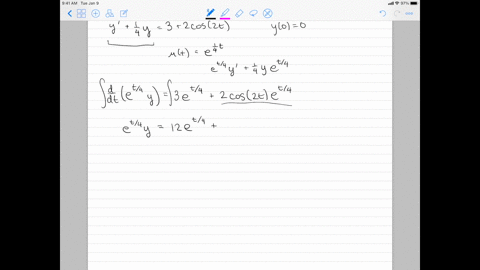 9:41 AM Tue Jan 9
87%
y' + 1/4 y = 3 + 2cos(2t)    y(0)=0
μ(t) = e^{1/4 t}
e^{t/4} y' + 1/4 y e^{t/4}
∫ d/dt (e^{t/4} y) = ∫ 3e^{t/4} + 2cos(2t)e^{t/4}
e^{t/4} y = 12e^{t/4} +